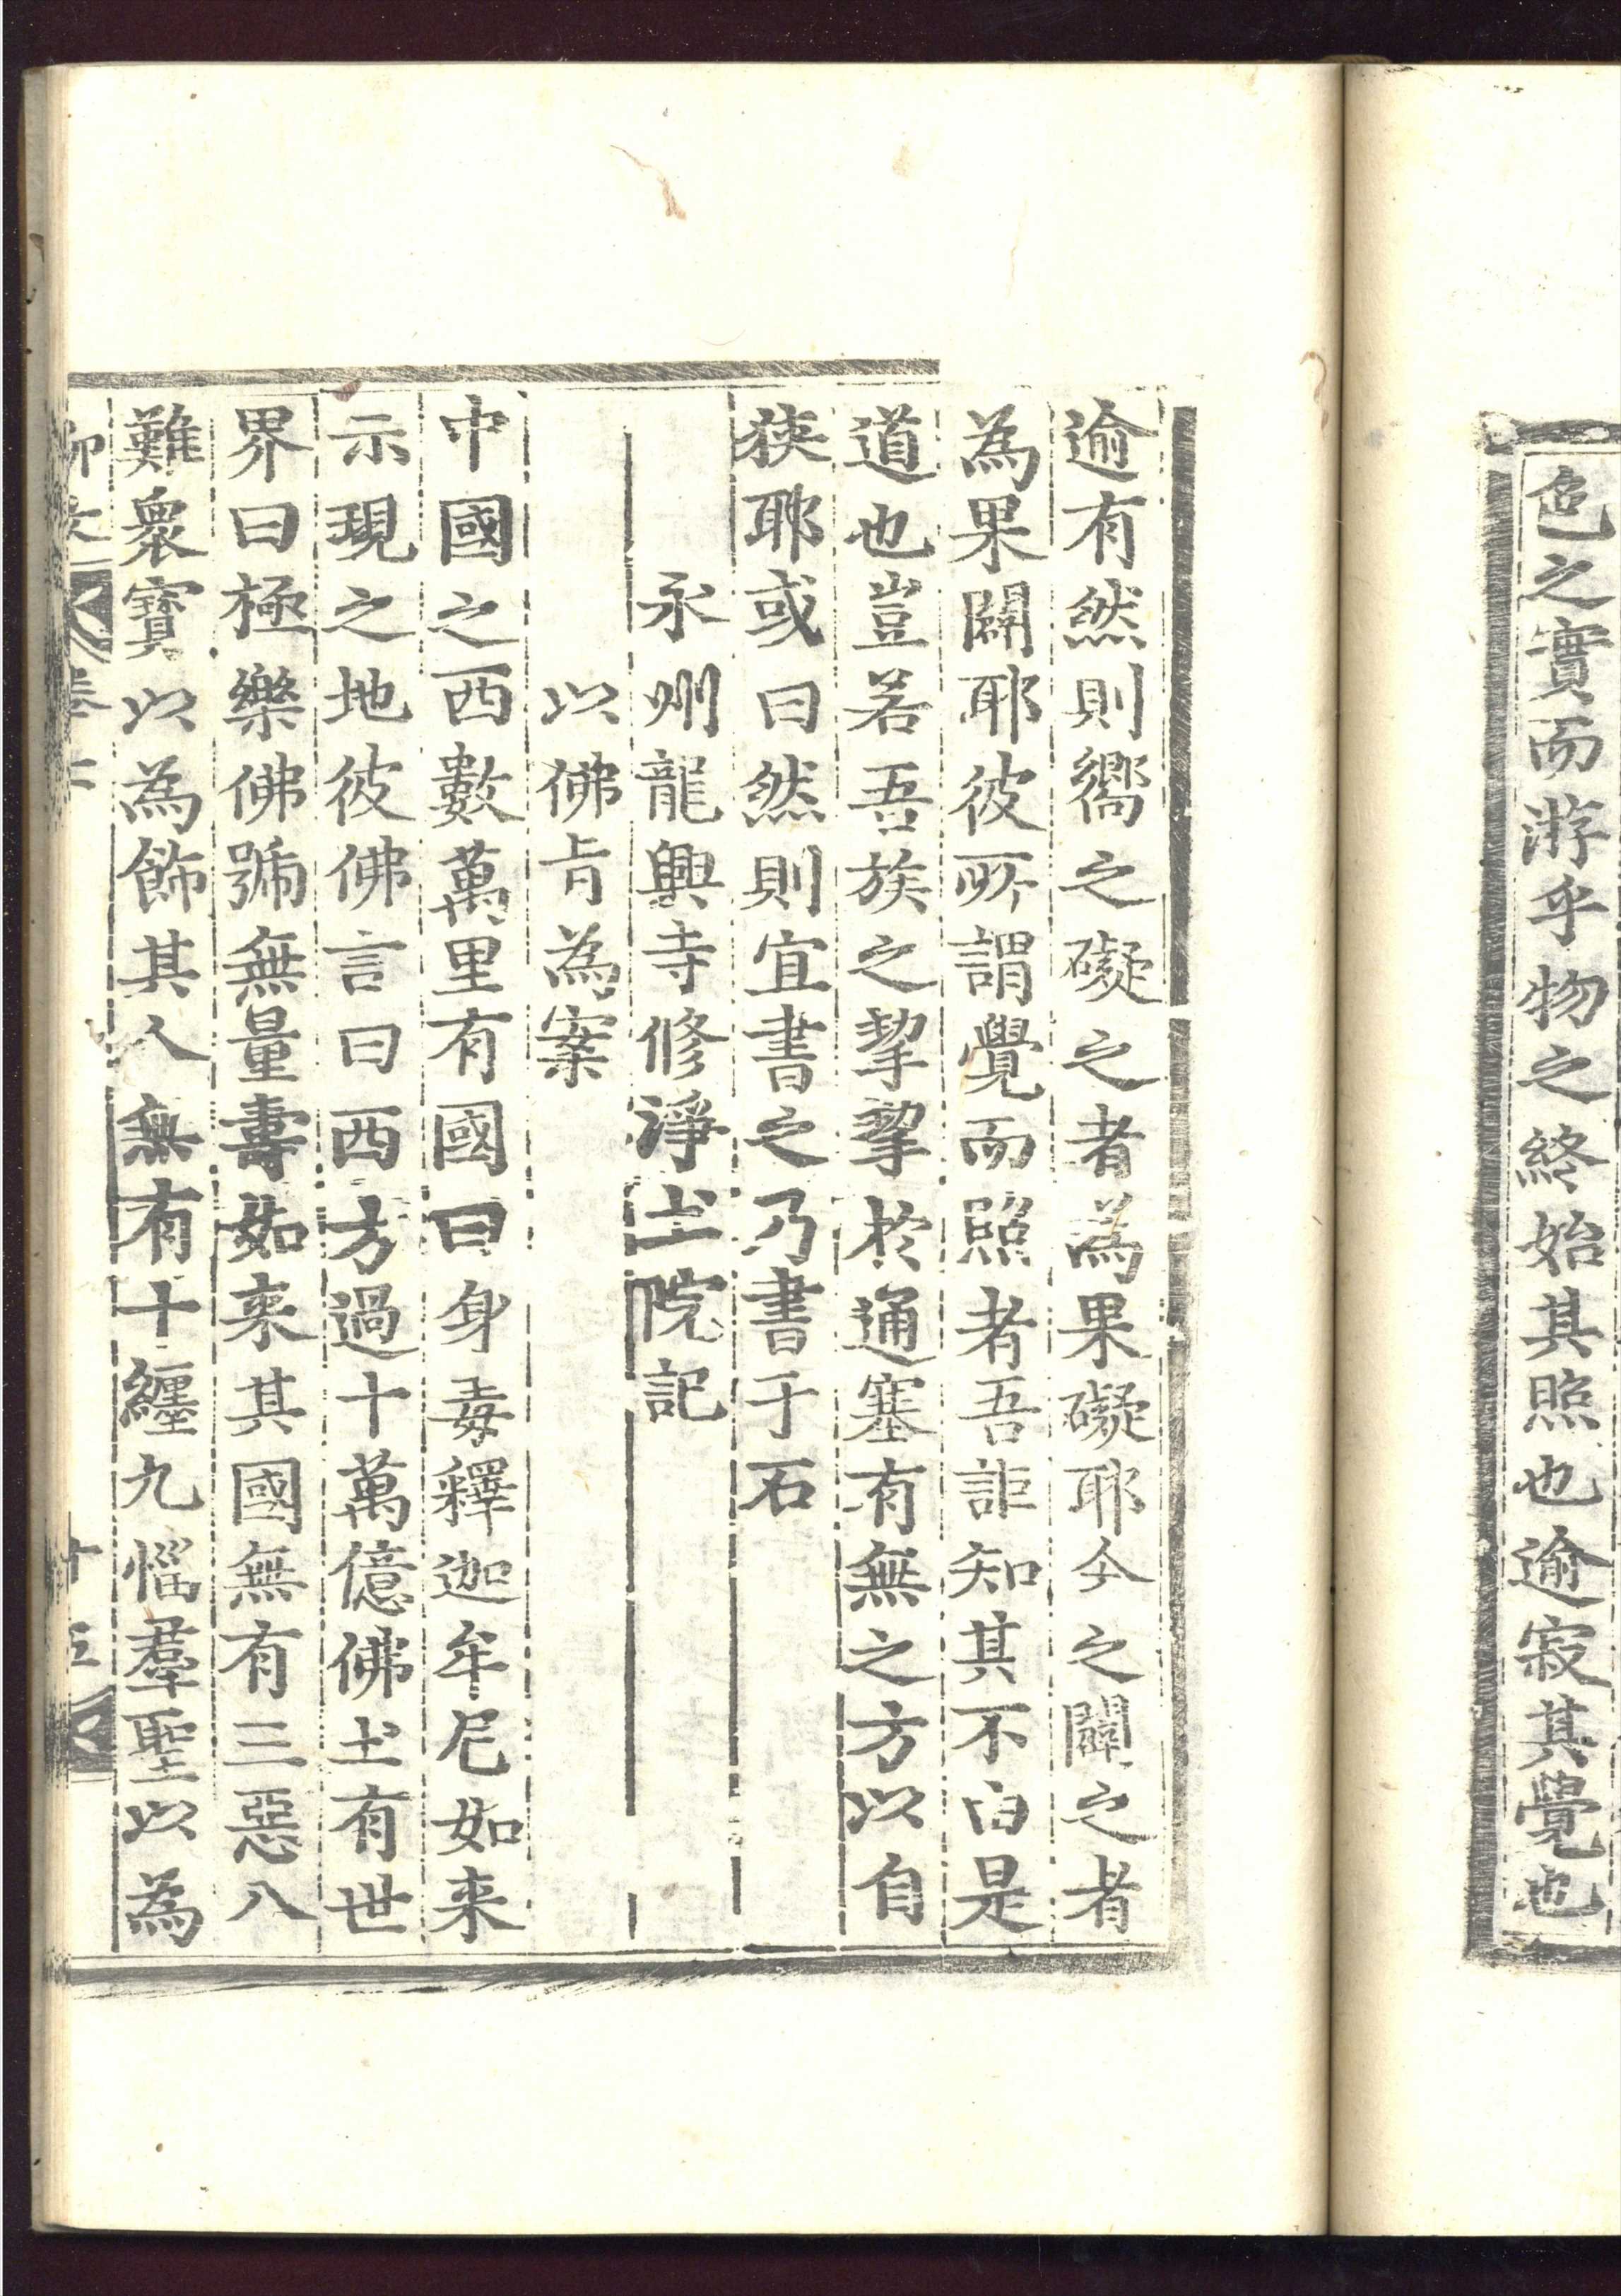 色之實而游乎物之終始其照也逾寂其覺也
逾有然則嚮之礙之者為果礙耶今之闢之者
為果闢耶彼所謂覺而照者吾詎知其不白是
道也豈若吾族之挈挈於通塞有無之方以自
狹耶或曰然則宜書之乃書于石
永州龍興寺修淨土院記
以佛肯為案
中國之西數萬里有國曰身毒釋迦牟尼如来
示現之地彼佛言曰西方過十萬億佛土有世
界曰極樂佛號無量壽如来其國無有三惡八
難衆寶以為飾其人無有十纏九惱羣聖以為